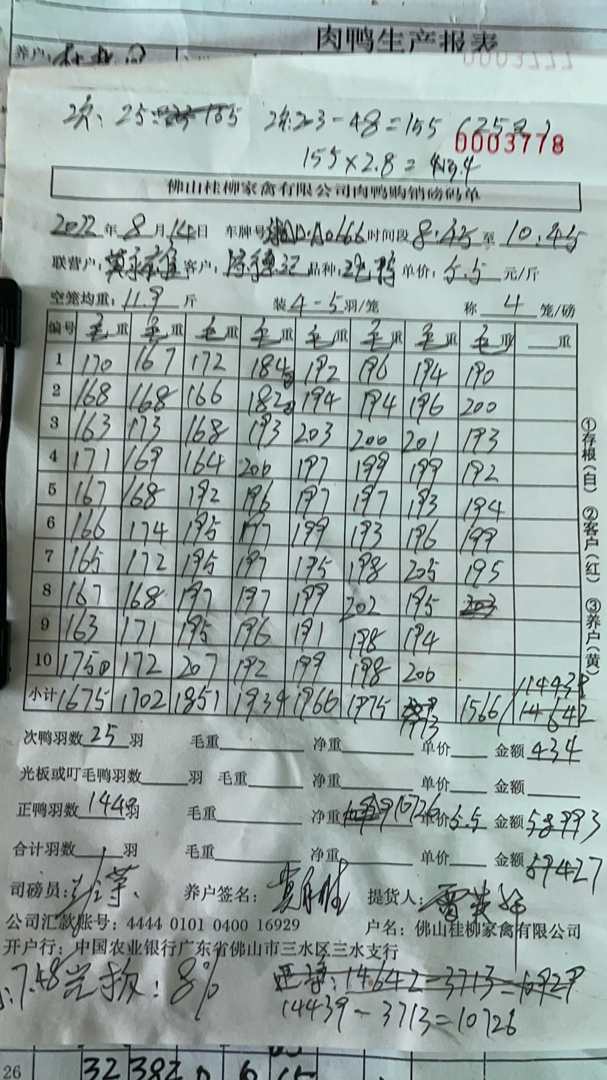 肉鸭生产报表
养户
0003777
2次: 25: 155 2次:23-48=155 (25只)
0003778
155×2.8=434
佛山桂柳家禽有限公司肉鸭购销磅码单
2022年8月14日 车牌号 时间段8.45至10.45
联营户: 客户: 品种: 单价:5.5元/斤
空笼均重:11.9斤 装4-5羽/笼 称4笼/磅
编号 毛重 毛重 毛重 毛重 毛重 毛重 毛重 毛重 重
1 170 167 172 184 192 196 194 190
2 168 168 166 182 194 194 196 200
3 163 173 168 193 203 200 201 193
4 171 169 164 200 197 199 199 192
5 167 168 192 196 197 197 193 194
6 166 174 195 197 199 193 196 199
7 165 172 195 197 195 198 205 195
8 167 168 197 197 199 202 195 203
9 163 171 195 196 191 198 194
10 175 172 207 192 199 198 200
14439
小计 1675 1702 1851 1934 1966 1975 1973 1566 14642
次鸭羽数25羽 毛重 净重 单价 金额434
光板或叮毛鸭羽数 羽 毛重 净重 单价 金额
正鸭羽数1449羽 毛重 净重10726 单价5.5 金额58993
合计羽数 羽 毛重 净重 单价 金额59427
司磅员: 养户签名: 提货人:
公司汇款账号: 4444 0101 0400 16929 户名: 佛山桂柳家禽有限公司
开户行: 中国农业银行广东省佛山市三水区三水支行
7.48 8% 正净:14642-3713=10929
14439-3713=10726
①存根(白) ②客户(红) ③养户(黄)
26 32 382 6